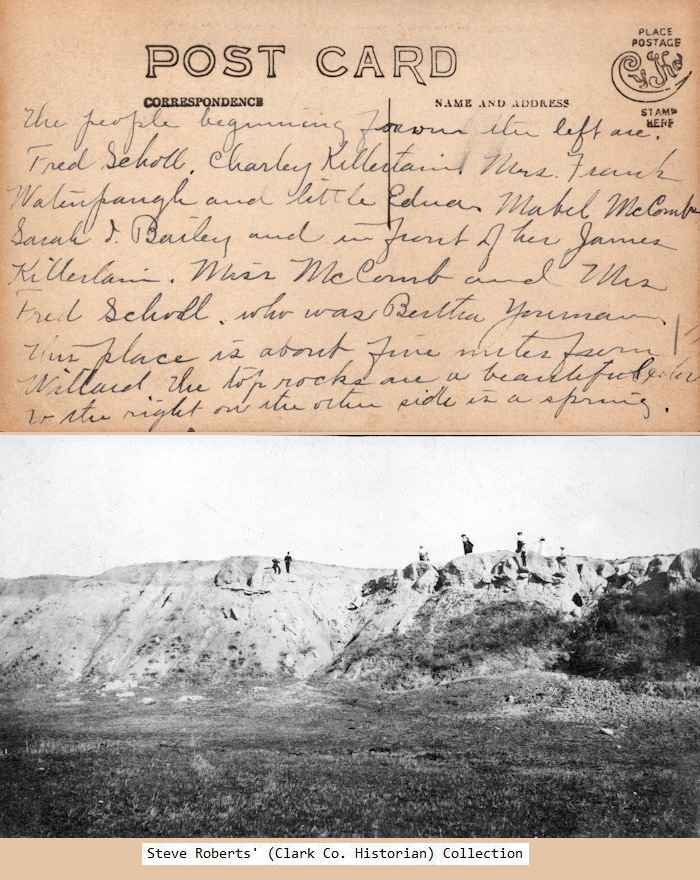 POST CARD
CORRESPONDENCE
NAME AND ADDRESS
PLACE
POSTAGE
STAMP
HERE
The people beginning from the left are.
Fred Scholl. Charley Killerlain Mrs. Frank
Waterpaugh and little Edna. Mabel McComb
Sarah J. Bailey and in front of her James
Killerlain. Miss McComb and Mrs
Fred Scholl. who was Bertha Youmans.
This place is about five miles from
Willard The top rocks are a beautiful
to the right on the other side is a spring.
Steve Roberts' (Clark Co. Historian) Collection